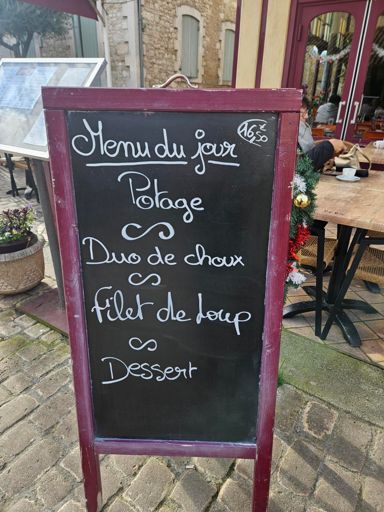 Menu du jour 16€50
Potage
Duo de choux
Filet de Loup
Dessert